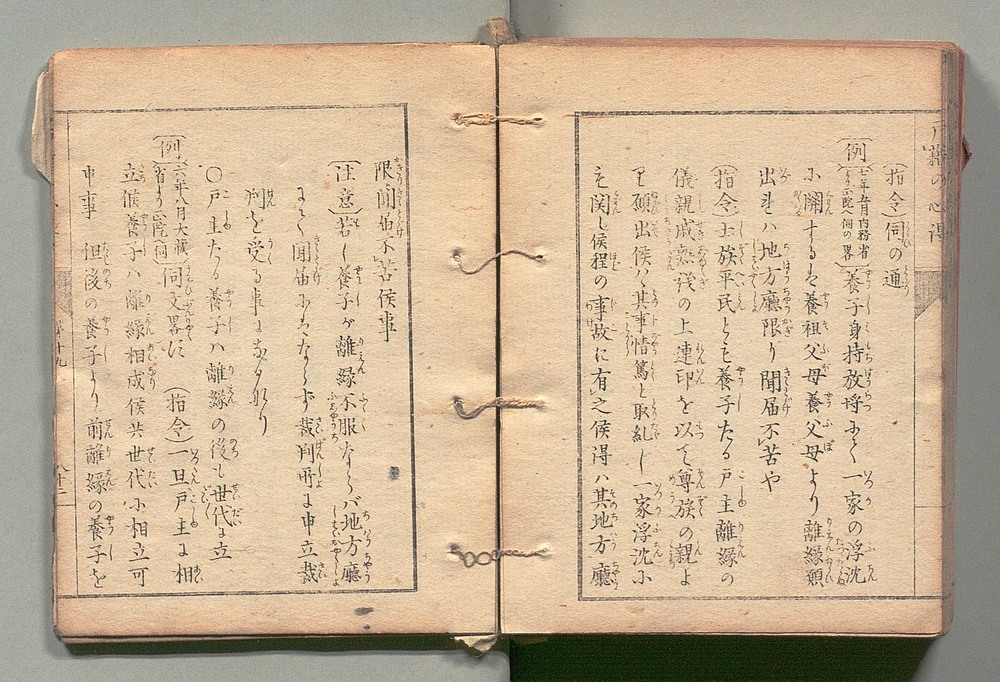 (指令)伺の通
(例)(七年五月内務省より山梨へ伺の畧)養子身持放埒にて一家の浮沈
に關するを養祖父母養父母より離縁願
出れハ地方廳限り聞届不苦や
(指令)士族平民とも養子たる戸主離縁の
儀親戚熟談の上連印を以て尊族の親よ
り願出候ハ其事情篤と取糺し一家浮沈に
も関し候程の事故に有之候得ハ其地方廳
限聞届不苦侯事
(注意)若し養子が離縁不服ならバ地方廳
にて聞届にならぬ 裁判所に申立裁
判を受る事になるなり
○戸主たる養子ハ離縁の後も世代に立
(例)(六年八月大藏省より山梨へ伺)伺文畧だ (指令)一旦戸主に相
立候養子ハ離縁相成候共世代に相立可
申事 但後の養子より前離縁の養子を